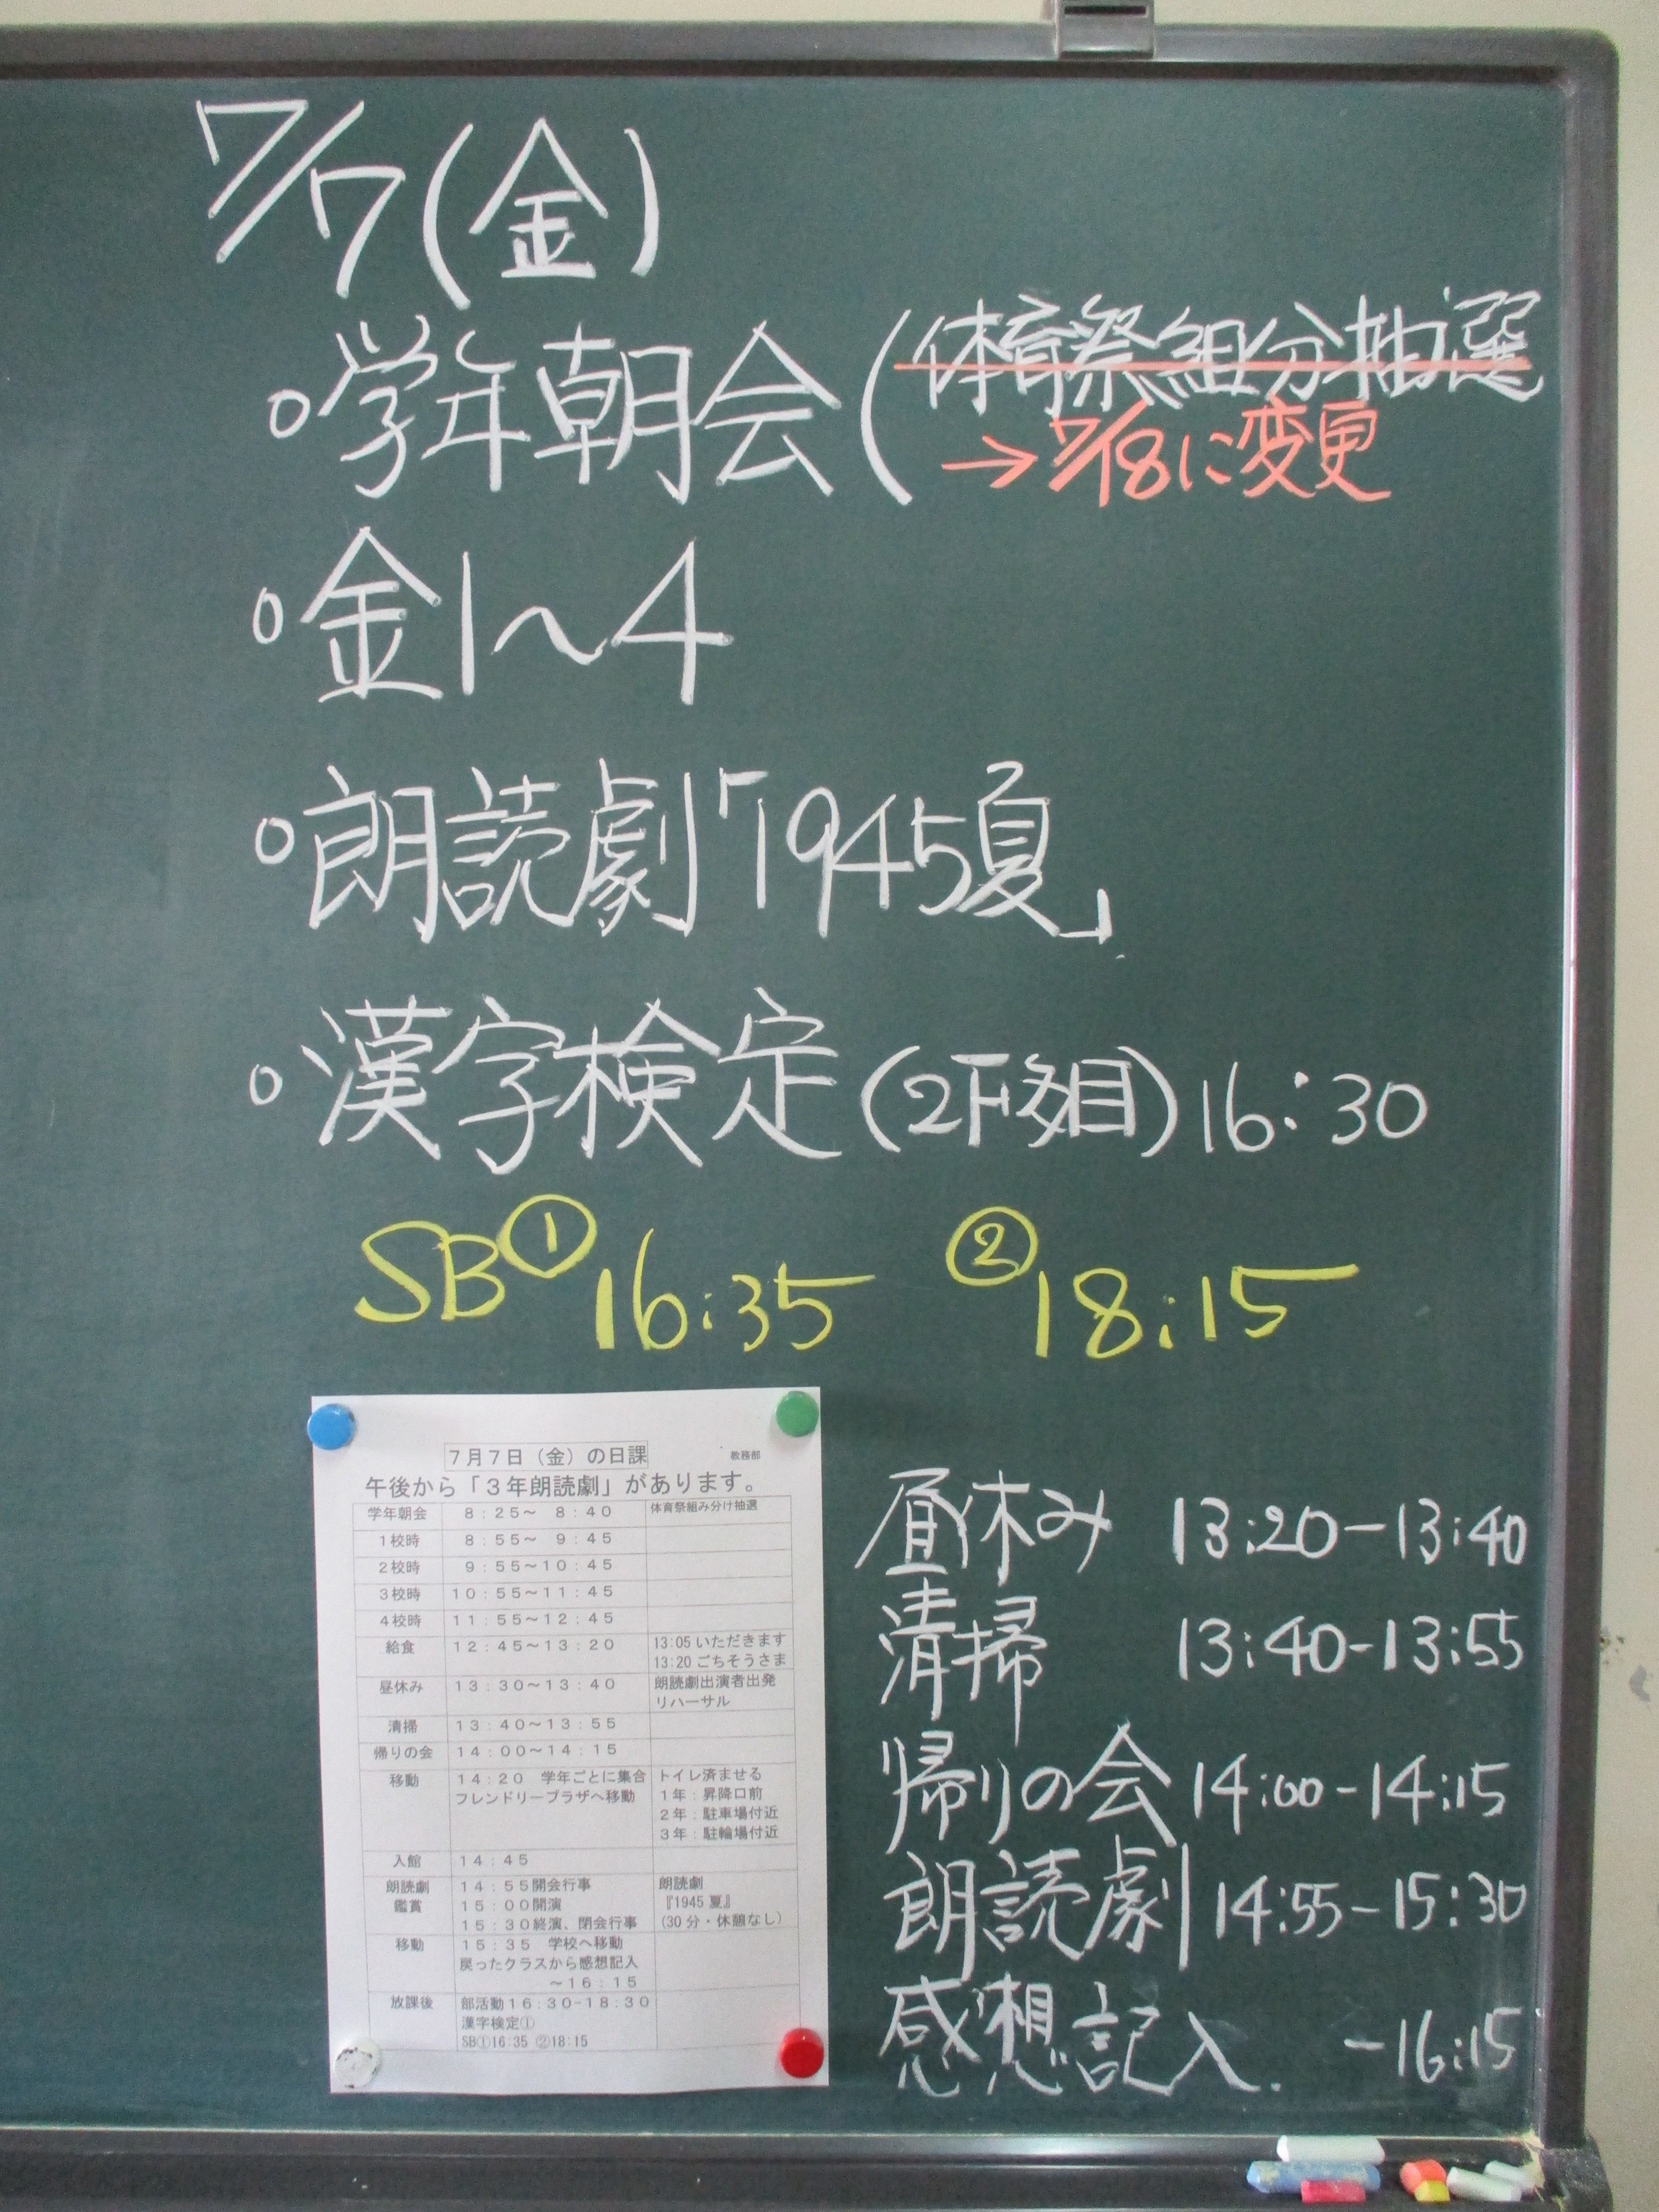 7/7(金)
○学年朝会(体育祭組分抽選
→7/18に変更
○金1〜4
○朗読劇「1945夏」
○漢字検定(2F各目)16:30
SB①16:35 ②18:15
7月7日(金)の日課 教務部
午後から「3年朗読劇」があります。
学年朝会 8:25〜 8:40 体育祭組み分け抽選
1校時 8:55〜 9:45
2校時 9:55〜10:45
3校時 10:55〜11:45
4校時 11:55〜12:45
給食 12:45〜13:20 13:05 いただきます
13:20 ごちそうさま
昼休み 13:30〜13:40 朗読劇出演者出発
リハーサル
清掃 13:40〜13:55
帰りの会 14:00〜14:15
移動 14:20 学年ごとに集合 トイレ済ませる
フレンドリープラザへ移動 1年:昇降口前
2年:駐車場付近
3年:駐輪場付近
入館 14:45
朗読劇 14:55開会行事 朗読劇
鑑賞 15:00開演 『1945 夏』
15:30終演、閉会行事 (30分・休憩なし)
移動 15:35 学校へ移動
戻ったクラスから感想記入
〜16:15
放課後 部活動16:30-18:30
漢字検定①
SB①16:35 ②18:15
昼休み 13:20-13:40
清掃 13:40-13:55
帰りの会 14:00-14:15
朗読劇 14:55-15:30
感想記入. -16:15